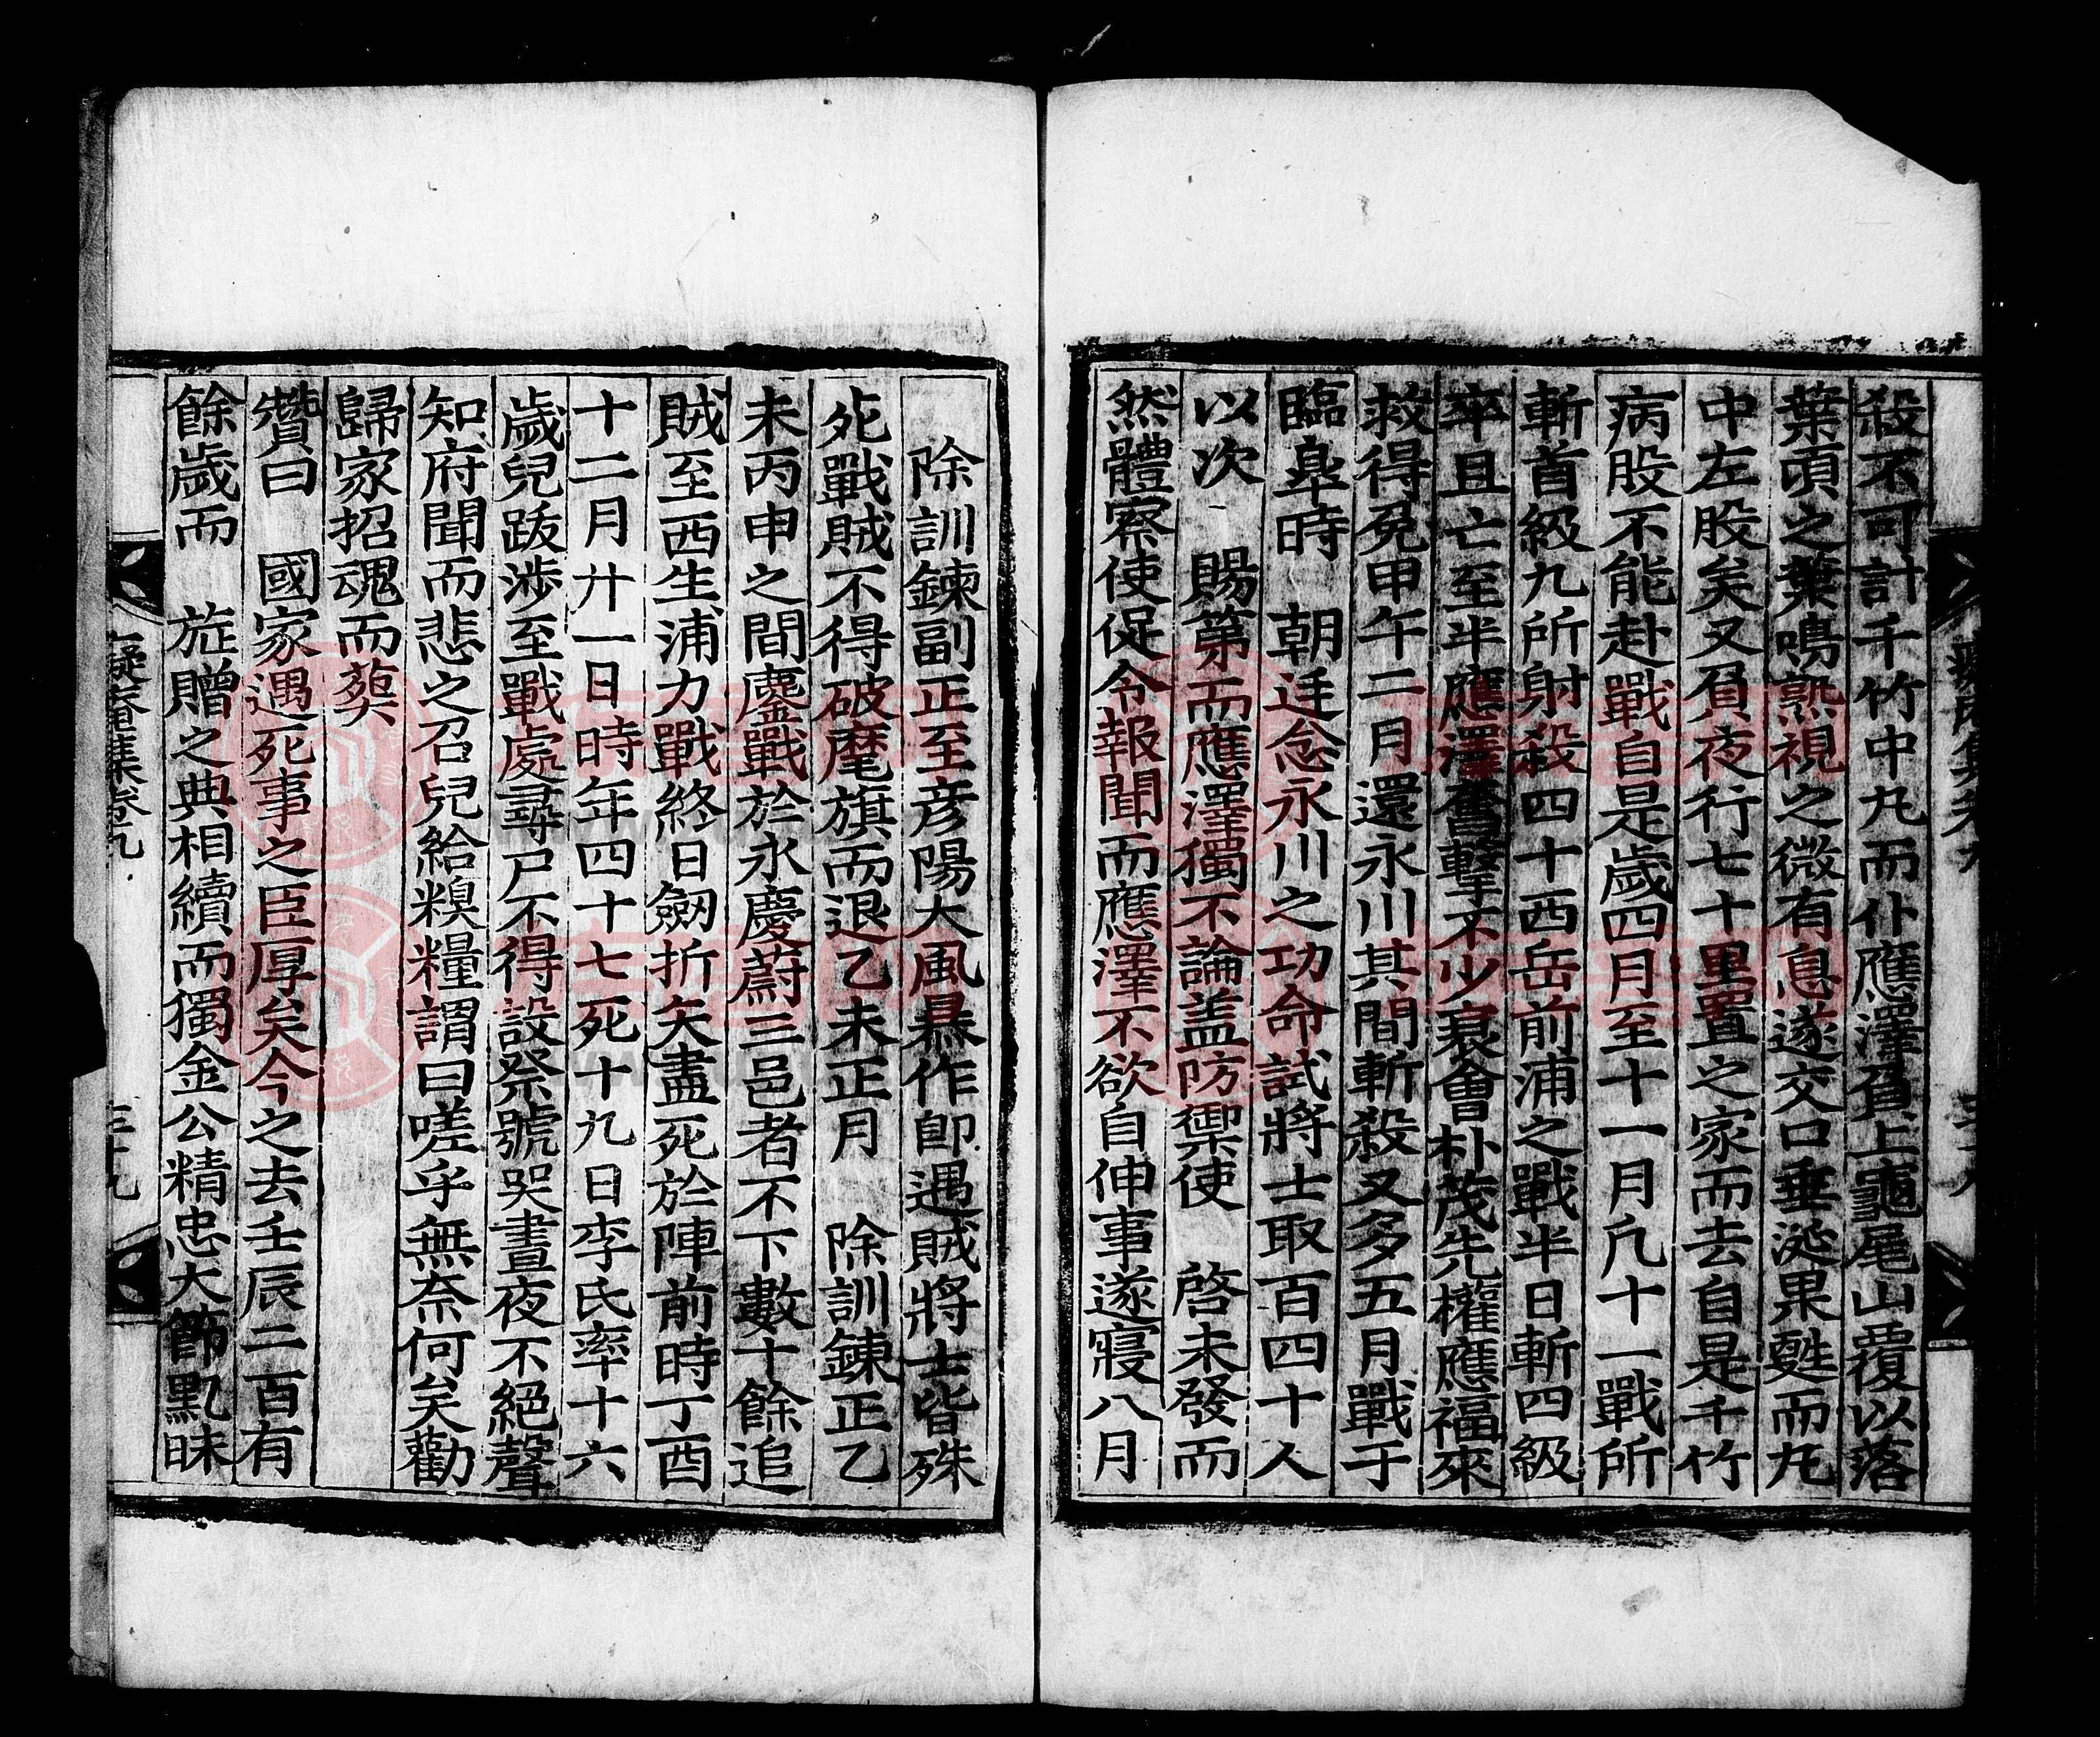 殺不可計千竹中丸而仆應澤負上龜尾山覆以落
葉頃之葉鳴熟視之微有息遂交口垂涎果甦而丸
中左股矣又負夜行七十里置之家而去自是千竹
病股不能赴戰自是歲四月至十一月凡十一戰所
斬首級九所射殺四十西岳前浦之戰半日斬四級
卒且亡至半應澤奮擊不少衰會朴茂先權應福來
救得免甲午二月還永川其間斬殺又多五月戰于
臨皐時 朝廷念永川之功命試將士取百四十人
以次 賜第而應澤獨不論盖防禦使 啓未發而
然體察使促令報聞而應澤不欲自伸事遂寢八月
除訓鍊副正至彦陽大風暴作卽遇賊將士皆殊
死戰賊不得破麾旗而退乙未正月 除訓鍊正乙
未丙申之間鏖戰於永慶蔚三邑者不下數十餘追
賊至西生浦力戰終日劒折矢盡死於陣前時丁酉
十二月廿一日時年四十七死十九日李氏率十六
歲兒跋涉至戰處尋尸不得設祭號哭晝夜不絕聲
知府聞而悲之召兒給糗糧謂曰嗟乎無奈何矣勸
歸家招魂而葬
贊曰 國家遇死事之臣厚矣今之去壬辰二百有
餘歲而 旌贈之典相續而獨金公精忠大節點昧
癡庵集卷九 三十九